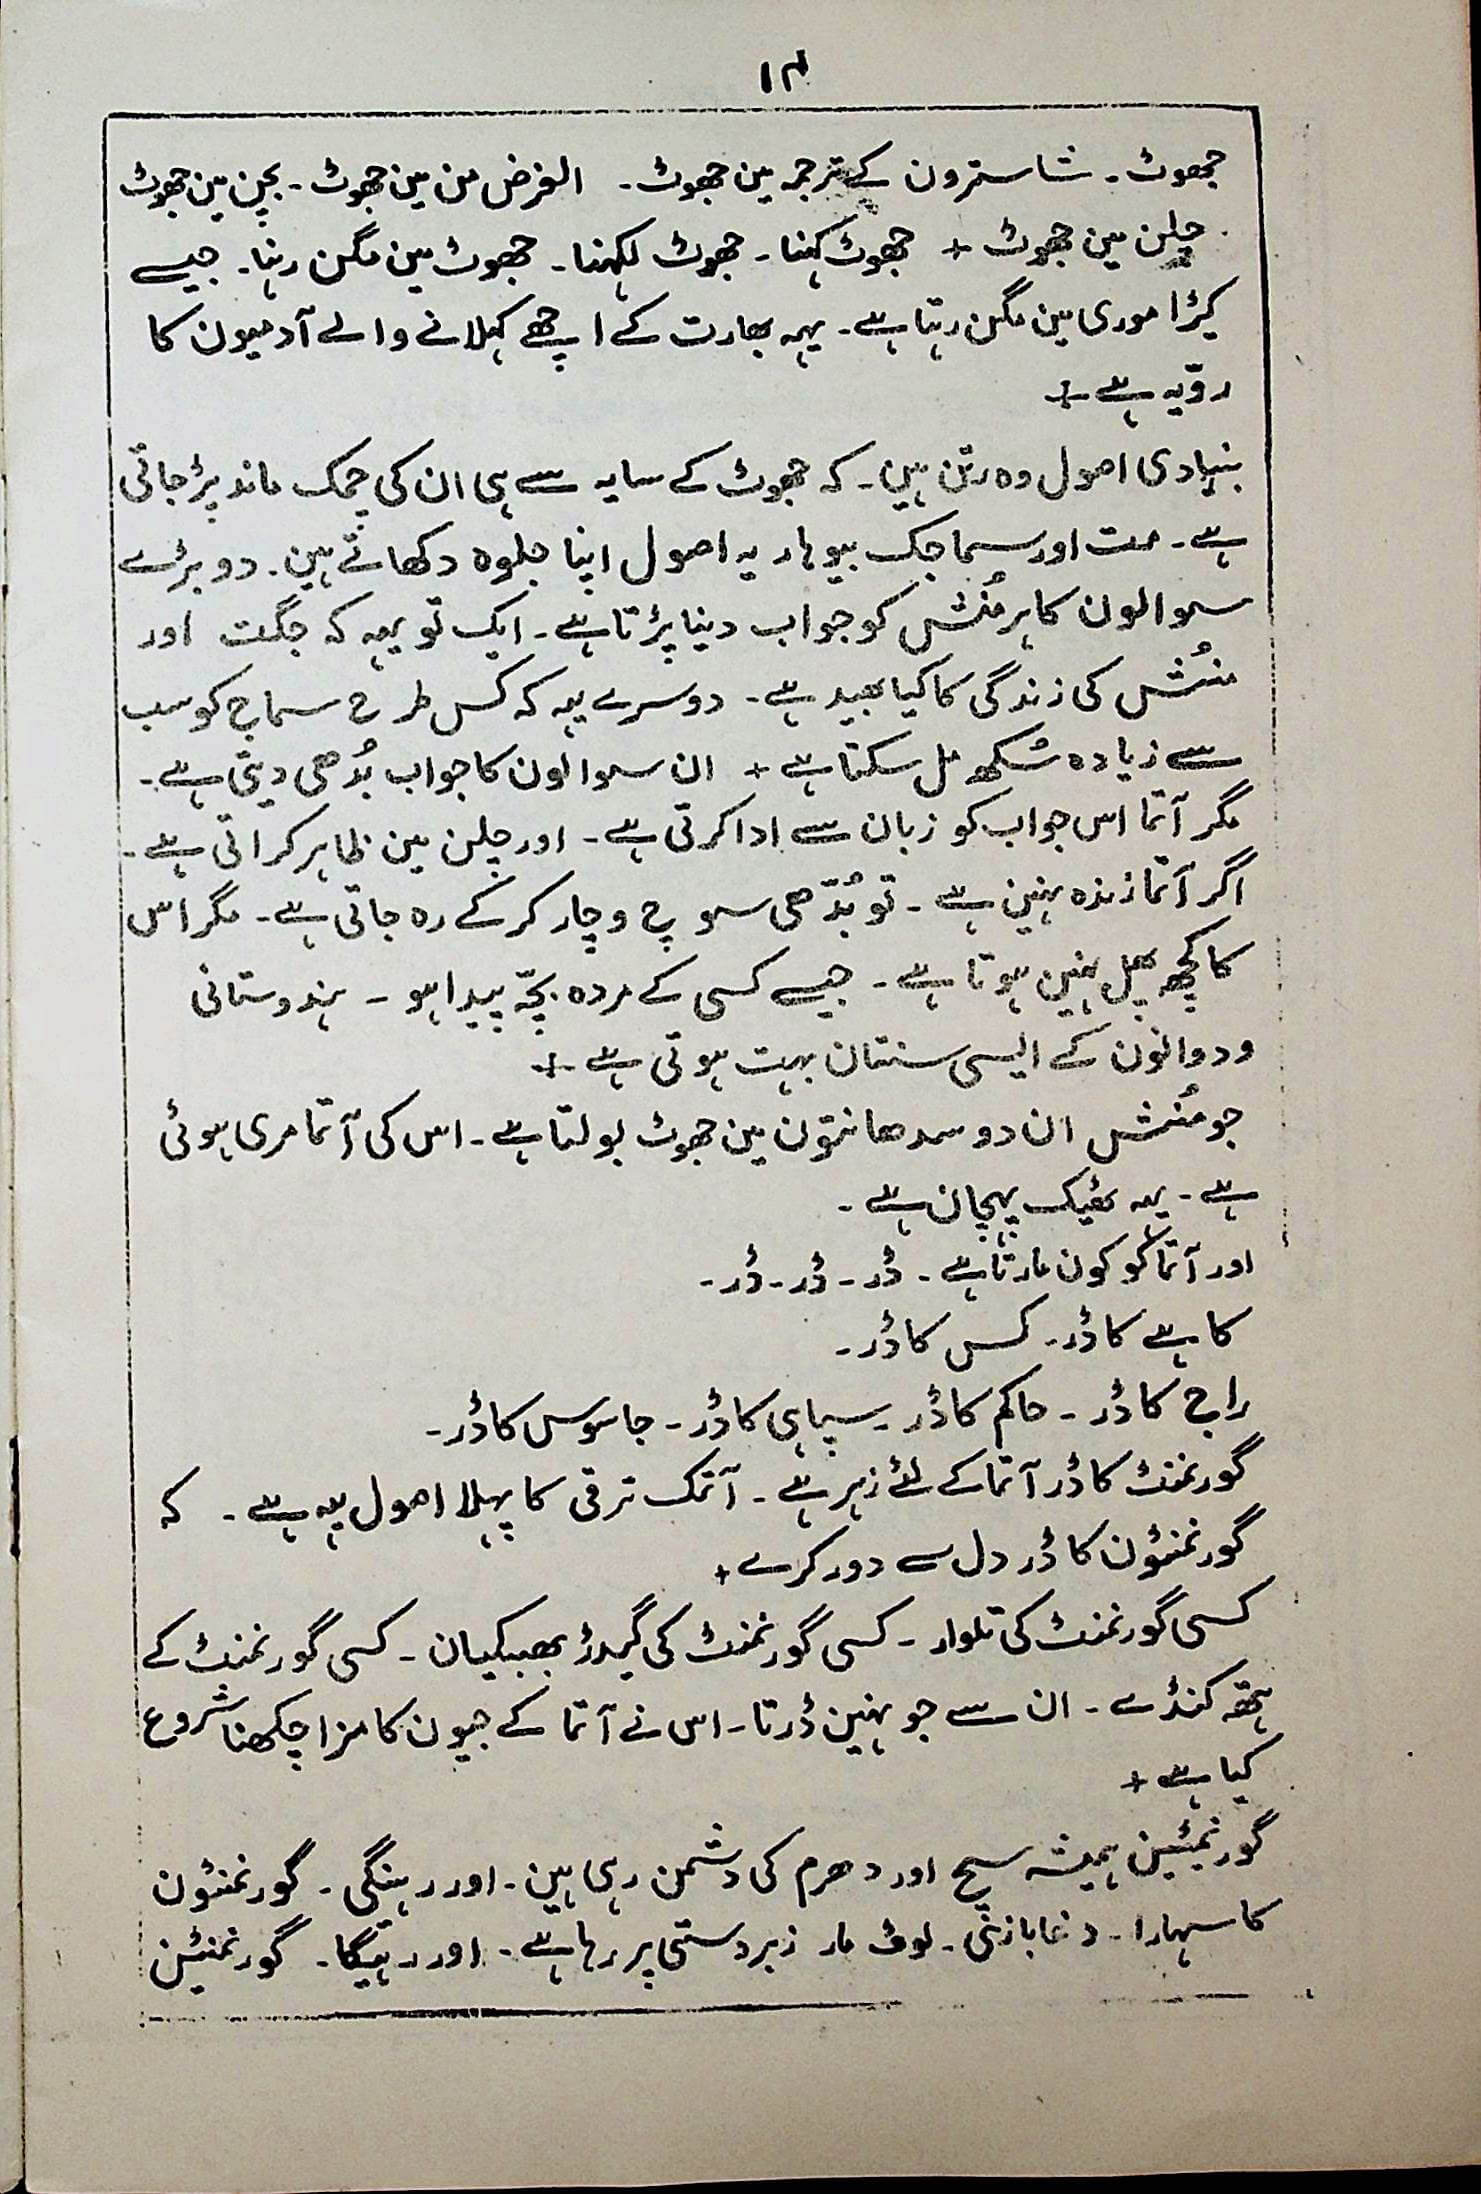 ۱۴
جھوٹ ۔ شاسترون کے ترجمہ مین جھوٹ ۔ الغرض من مین جھوٹ ۔ بچن مین جھوٹ
چلن مین جھوٹ + جھوٹ کہنا ۔ جھوٹ لکھنا ۔ جھوٹ مین مگن رہنا ۔ جیسے
کیڑا موری مین مگن رہتا ہے ۔ یہہ بھارت کے اچھے کہلانے والے آدمیون کا
رویّہ ہے +
بنیادی اصول وہ رتن ہین ۔ کہ جھوٹ کے سایہ سے ہی ان کی چمک ماند پڑ جاتی
ہے ۔ مت اور سماجک بیوہار یہ اصول اپنا جلوہ دکھاتے ہین ۔ دو بڑے
سوالون کا ہر مُنش کو جواب دینا پڑتا ہے ۔ ایک تو یہہ کہ جگت اور
منُش کی زندگی کا کیا بھید ہے ۔ دوسرے یہہ کہ کس طرح سماج کو سب
سے زیادہ سُکھ مل سکتا ہے + ان سوالون کا جواب بُدھی دیتی ہے ۔
مگر آتما اس جواب کو زبان سے ادا کرتی ہے ۔ اور چلن مین ظاہر کراتی ہے ۔
اگر آتما زندہ نہین ہے ۔ تو بُدّھی سوچ وچار کر کے رہ جاتی ہے ۔ مگر اس
کا کچھ پھل نہین ہوتا ہے ۔ جیسے کسی کے مردہ بچّہ پیدا ہو ۔ ہندوستانی
ودوانون کے ایسی سنتان بہت ہوتی ہے +
جو مُنش ان دو سدھانتون مین جھوٹ بولتا ہے ۔ اس کی آتما مری ہوئی
ہے ۔ یہہ ٹھیک پہچان ہے ۔
اور آتما کو کون مارتا ہے ۔ ڈر ۔ ڈر ۔ ڈر ۔
کاہے کا ڈر ۔ کس کا ڈر ۔
راج کا ڈر ۔ حاکم کا ڈر ۔ سپاہی کا ڈر ۔ جاسوس کا ڈر ۔
گورنمنٹ کا ڈر آتما کے لئے زہر ہے ۔ آتمک ترقی کا پہلا اصول یہہ ہے ۔ کہ
گورنمنٹون کا ڈر دل سے دور کرے +
کسی گورنمنٹ کی تلوار ۔ کسی گورنمنٹ کی گیدڑ بھبکیان ۔ کسی گورنمنٹ کے
ہتھ کنڈے ۔ ان سے جو نہین ڈرتا ۔ اس نے آتما کے جیون کا مزا چکھنا شروع
کیا ہے +
گورنمنٹین ہمیشہ سچ اور دھرم کی دشمن رہی ہین ۔ اور رہینگی ۔ گورنمنٹون
کا سہارا ۔ دغا بازی ۔ لوٹ مار زبردستی پر رہا ہے ۔ اور رہیگا ۔ گورنمنٹین